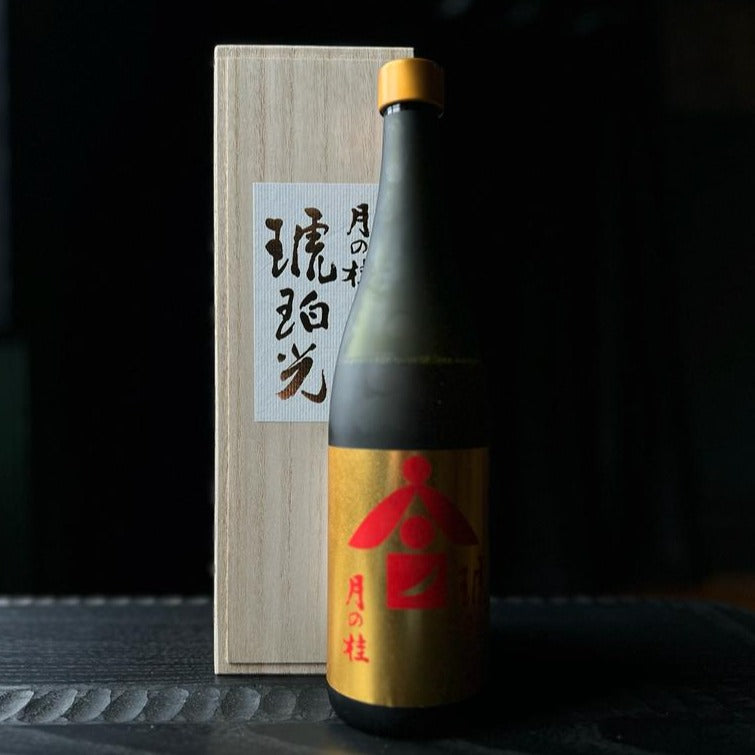 月の桂
琥珀光
月の桂